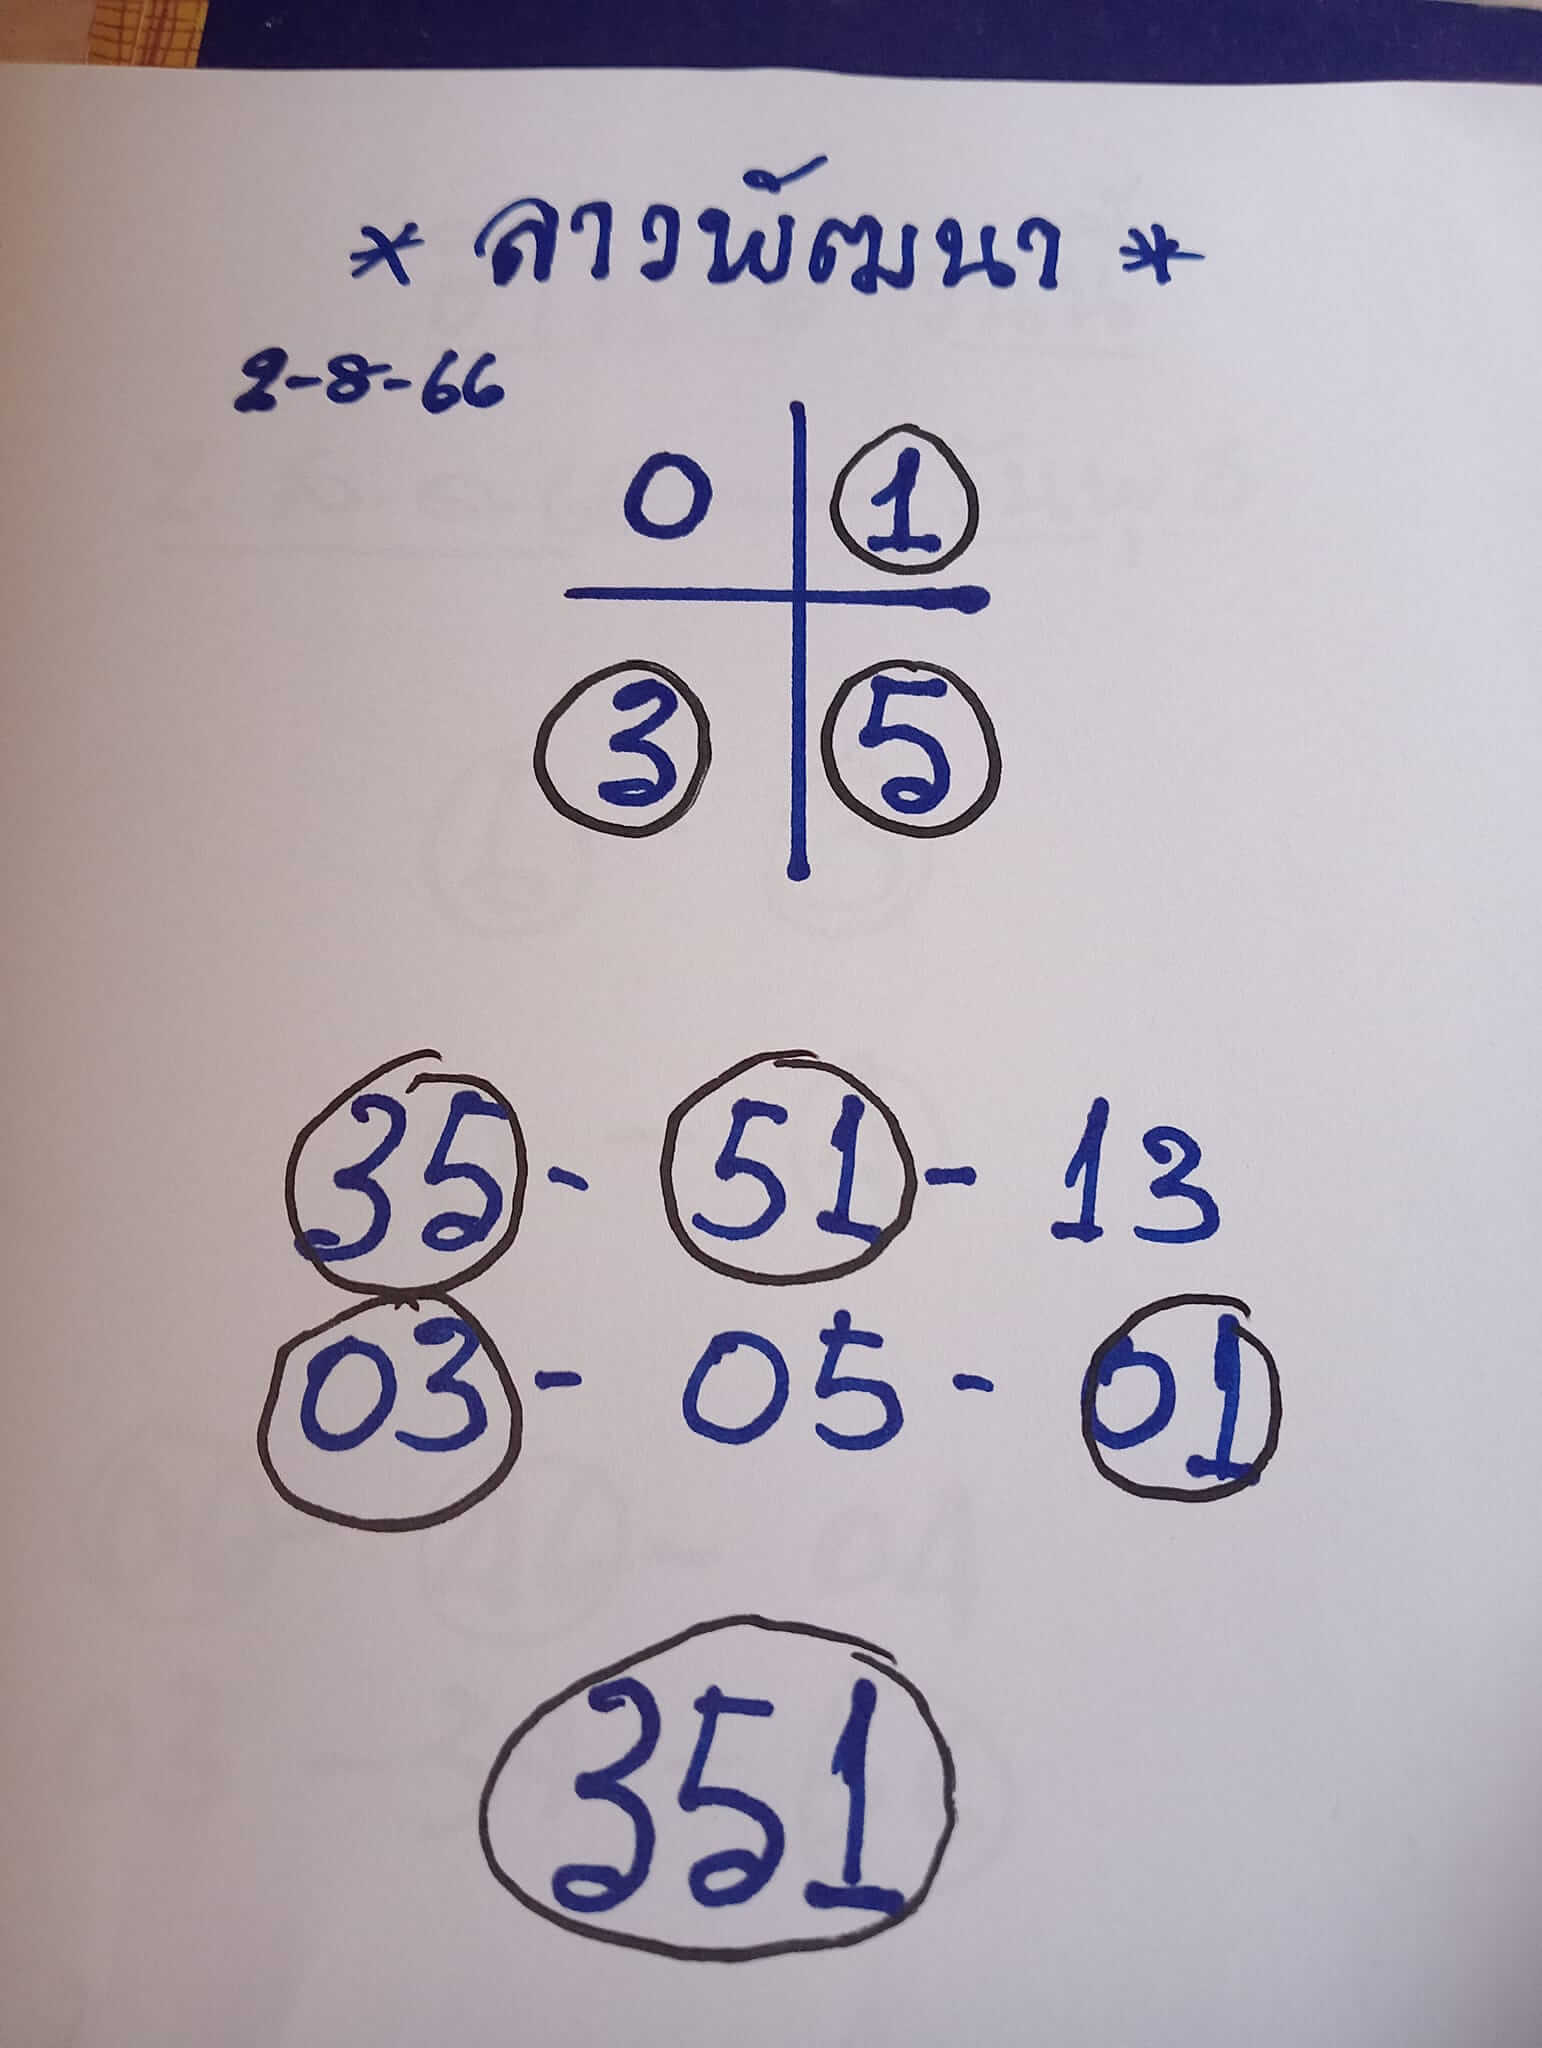 * ลาวพัฒนา *
2-8-66
0 1
3 5
35 - 51 - 13
03 - 05 - 01
351